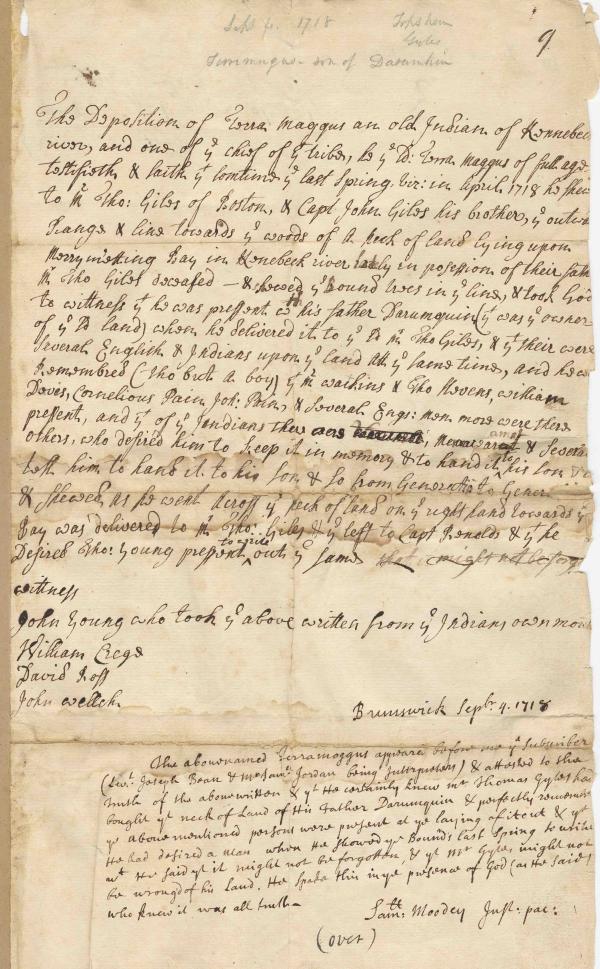 Sept 4. 1718
Topsham
Gyles
Terrimugus - son of Darumkin
9.
The Deposition of Terra Maggus an old Indian of Kennebec
river, and one of yᵉ chief of yᵉ tribes, he yᵉ sᵈ: Terra Maggus of full age
testifieth & saith yᵗ somtime yᵉ last Spring. viz: in April 1718 he shew
to Mʳ Tho: Giles of Boston, & Capt John Giles his brother, yᵉ outw
Range & line towards yᵉ woods of A Neck of land lying upon
Merrymeeting Bay in Kenebeck river lately in possession of their fath
Mʳ Tho Giles deceased — & shewed yᵉ bound trees in yᵉ line, & took God
to wittness yᵗ he was present wᵗʰ his father Darumquin (yᵗ was yᵉ owner
of yᵉ sᵈ land) when he delivered it to yᵉ sᵈ Mʳ Tho Giles, & yᵗ their were
several English & Indians upon yᵉ land att yᵉ same time, and he w
Remembred (tho but a boy) yᵗ Mʳ Watkins & Tho Stevens, William
Davis, Cornelious Pain, Joh: Pain, & several Engs: men more were there
present, and yᵗ of yᵉ Indians there was & Severa
others, who desired him to keep it in memory & to hand it to his son &
left him to hand it to his son & so from Generation to Gener
& shewed as he went Across yᵉ neck of land on yᵉ right hand towards yᵉ
Bay was delivered to Mʳ Tho: Giles & yᵉ left to Capt Renolds & yᵗ he
Desired Tho: Young present to write out yᵉ same that might not be forgo
wittness
John Young who took yᵉ above written from yᵉ Indians own mou
William Crege
David Ross
John Wellch
Brunswick Sepᵇʳ. 4. 1718
The abovenamed Terramoggus appeared before me yᵉ subscriber
(Lewᵗ. Joseph Bean & Mʳ Samˡ. Jordan being Interpreters) & attested to the
truth of the abovewritten & yᵗ He certainly knew mʳ Thomas Gyles had
bought yᵗ neck of Land of His Father Darumquin & perfectly remembre
yᵉ abovementioned persons were present at yᵉ laying of it out & yᵗ
He had desired a man when He showed yᵉ Bounds last Spring to write
wᵗ He said yᵗ it might not be forgotten, & yᵗ Mʳ Gyles might not
be wrongd of his Land. He spake this in yᵉ presence of God (as He said)
who knew it was all truth -
Samˡˡ: Moodey Just: pac:
(over)